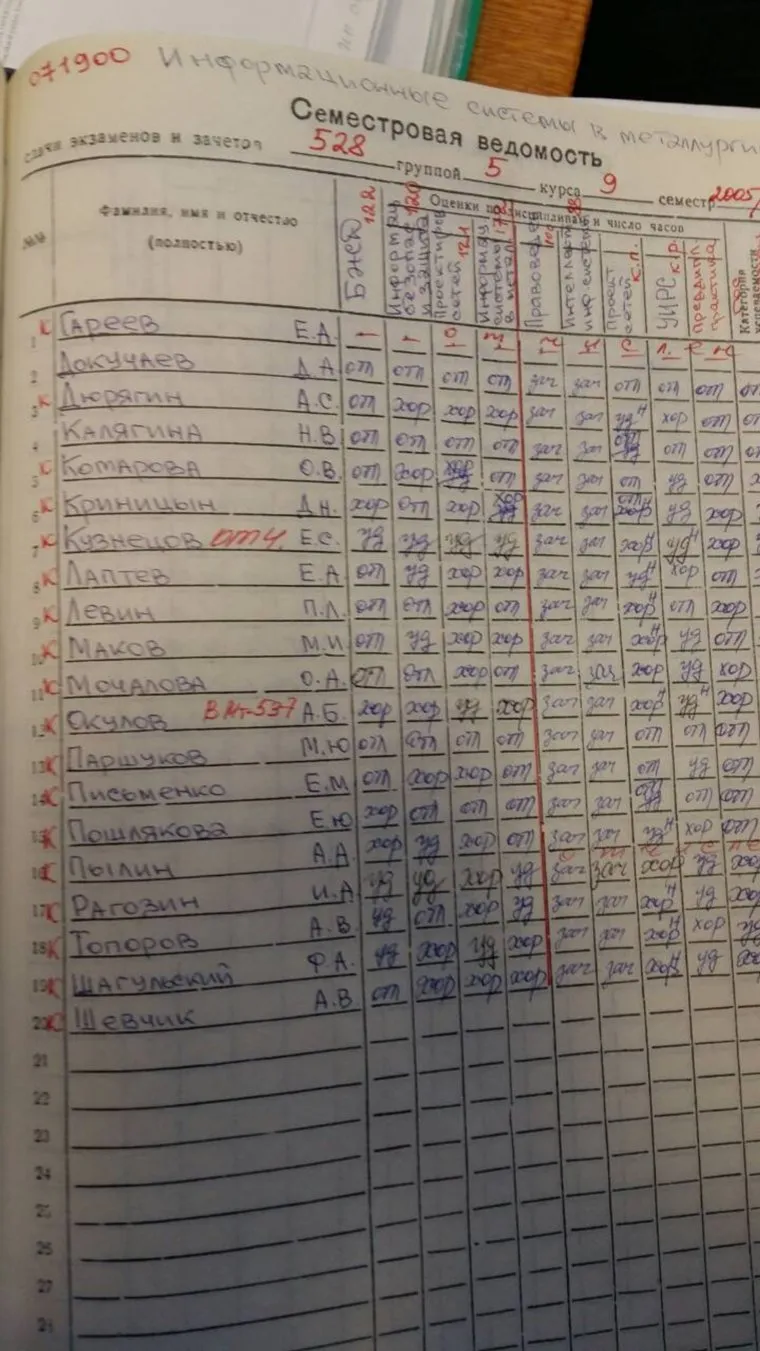 071900 Информационные системы в металлургии
Семестровая ведомость
сдачи экзаменов и зачетов 528 группой 5 курса 9 семестр 2005/
№№ Фамилия, имя и отчество (полностью) Оценки по дисциплинам и число часов
БЖД 122
Информац безопас и защита 120
Проектиров сетей 124
Информац системы в метал 178
Правоведе
Интеллект инф. систем
Проект сетей к.п.
УИРС к.р.
Преддипл практика
Категория успеваемости
1 К Гареев Е.А.
2 Докучаев Д.А от отл от от зач зач отл от от
3 К Дюрягин А.С. от хор хор хор зач зач уд хор от
4 Калягина Н.В от от от от зач зач от от
5 К Комарова О.В. от хор от зач зач от уд от
6 К Криницын Д.Н. хор отл хор хор зач зач уд хор
7 К Кузнецов отч. Е.С. уд уд уд уд зач зач хор уд хор
8 К Лаптев Е.А от уд хор хор зач зач уд хор от
9 К Левин П.Л. от отл хор от зач зач хор от хор
10 К Маков М.И от уд хор хор зач зач хор уд от
11 К Мочалова О.А. от отл хор от зач зач хор уд хор
12 К Окулов А.Б. хор хор уд хор зач зач хор уд хор
13 К Паршуков М.Ю отл отл от от зач зач от от отл
14 К Письменко Е.М от хор хор от зач зач от уд от
15 К Пошлякова Е.Ю хор от от от зач зач от от
16 К Пылин А.А хор уд хор от зач зач уд хор от
17 К Рагозин И.А уд уд хор уд зач зач хор уд хор
18 К Топоров А.В уд от хор уд зач зач хор уд хор
19 К Шагульский Ф.А. уд хор уд хор зач зач хор хор уд
20 К Шевчик А.В от хор хор хор зач зач хор уд хор
21
22
23
24
25
26
27
28